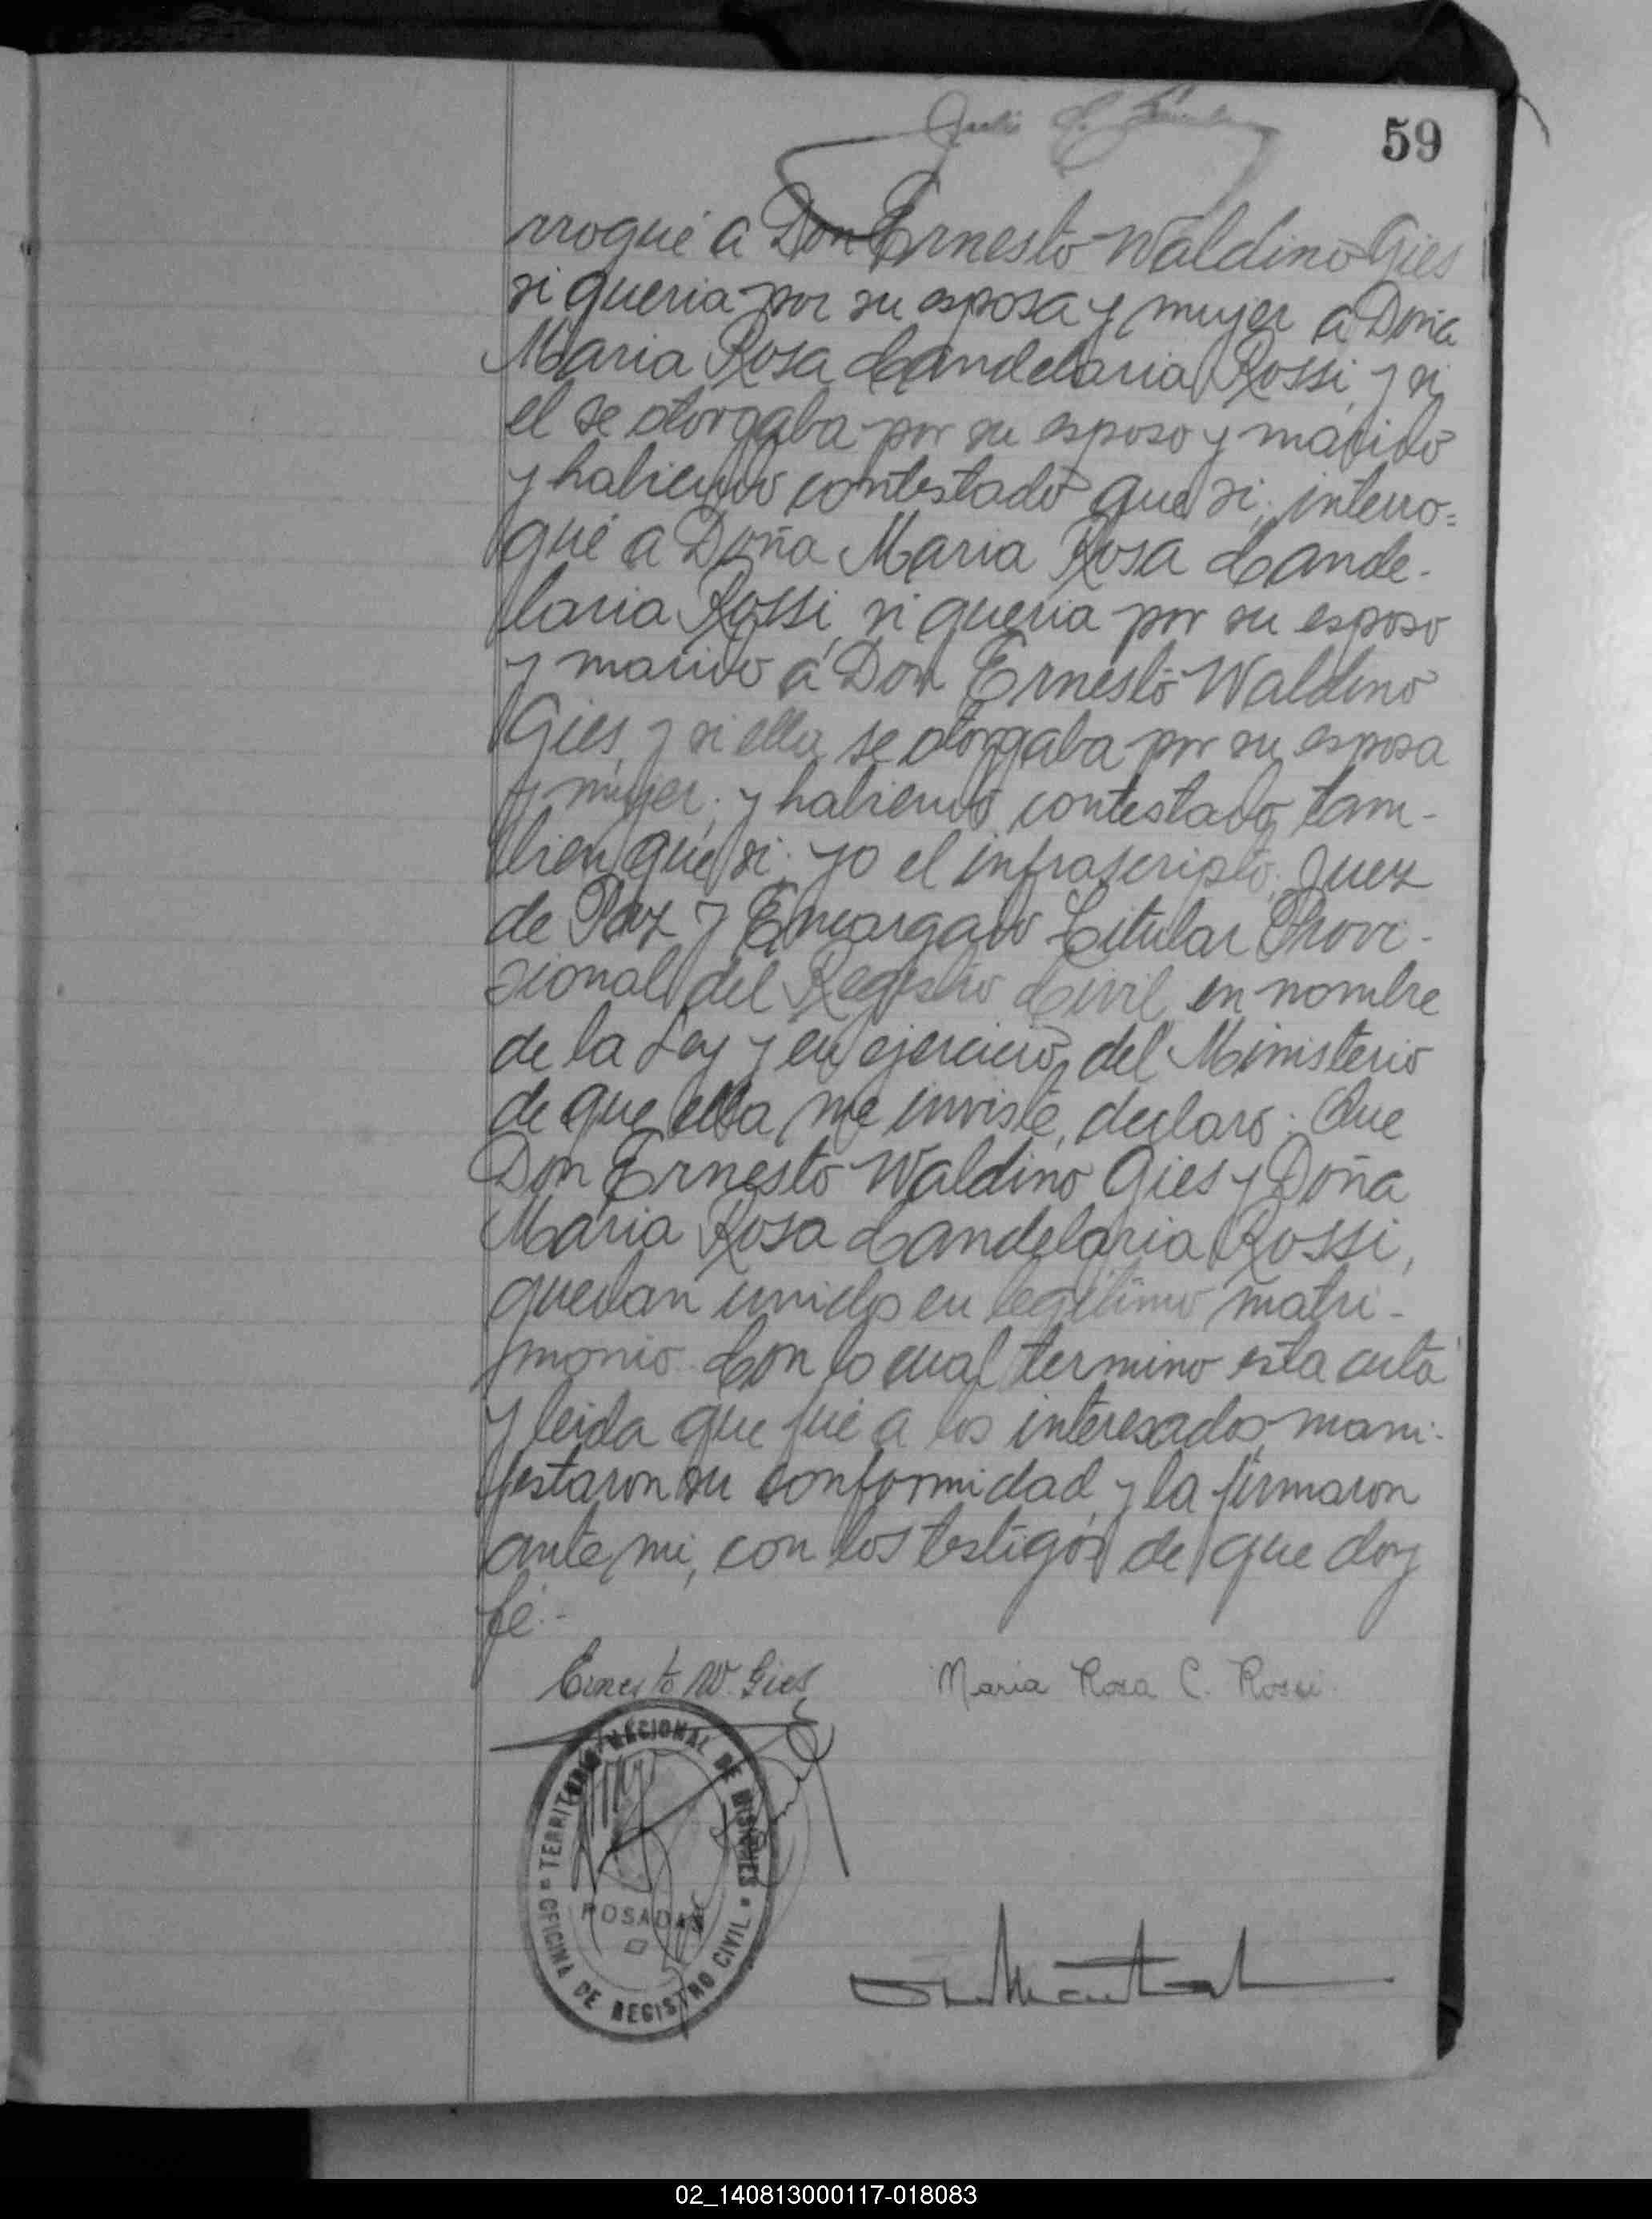 59
rrogué a Don Ernesto Waldino Gies
si queria por su esposa y mujer a Doña
Maria Rosa Candelaria Rossi, y si
el se otorgaba por su esposo y marido
y habiendo contestado que si; interro=
gué a Doña Maria Rosa Cande-
laria Rossi, si queria por su esposo
y marido á Don Ernesto Waldino
Gies, y si ella se otorgaba por su esposa
y mujer; y habiendo contestado tam-
bien que si; yo el infrascripto, Juez
de Paz y Encargado Titular Provi-
sional del Registro Civil, en nombre
de la Ley y en ejercicio del Ministerio
de que ella me inviste, declaro: Que
Don Ernesto Waldino Gies y Doña
Maria Rosa Candelaria Rossi,
quedan unidos en legítimo matri-
monio. Con lo cual termino esta acta
y leida que fué a los interesados, mani-
festaron su conformidad y la firmaron
ante mi, con los testigos de que doy
fé.-
Ernesto W. Gies Maria Rosa C. Rossi
TERRITORIO NACIONAL DE MISIONES
POSADAS
OFICINA DE REGISTRO CIVIL
02_140813000117-018083